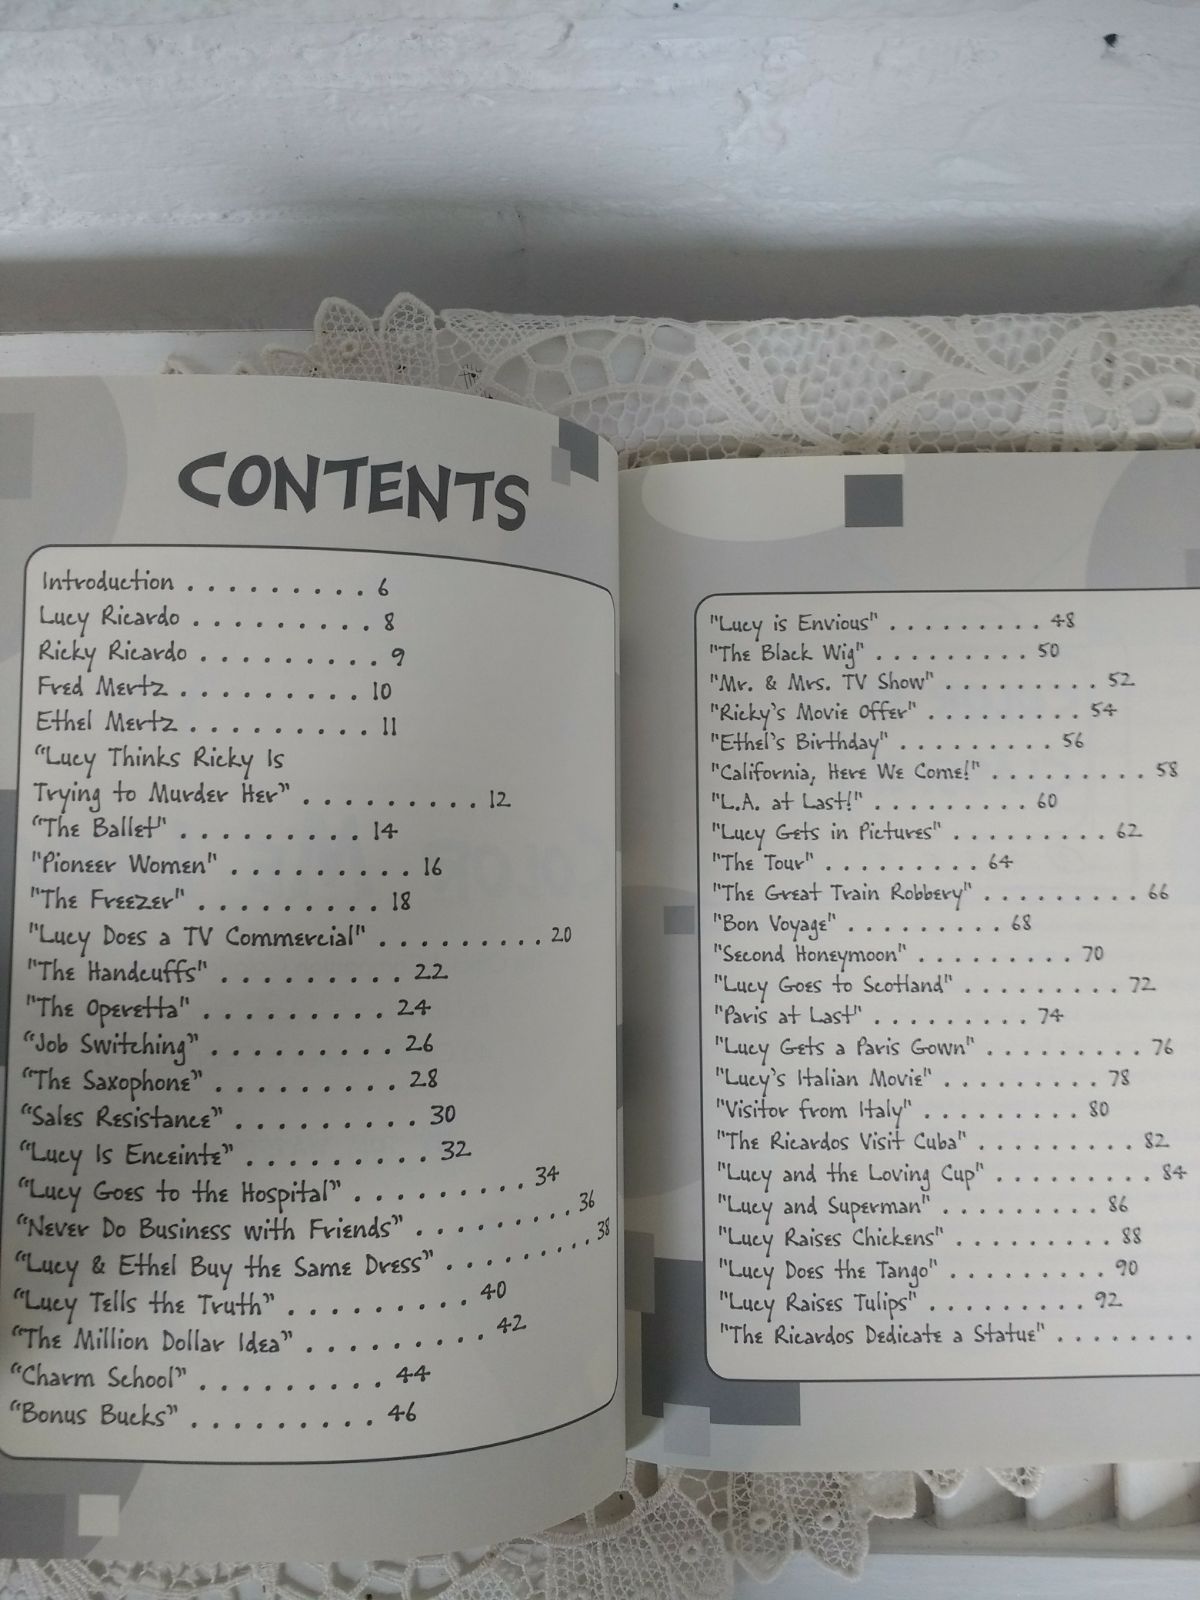 CONTENTS
Introduction . . . . . . . . . 6
Lucy Ricardo . . . . . . . . . 8
Ricky Ricardo . . . . . . . . . 9
Fred Mertz . . . . . . . . . 10
Ethel Mertz . . . . . . . . . 11
“Lucy Thinks Ricky Is
Trying to Murder Her” . . . . . . . . . 12
“The Ballet" . . . . . . . . . 14
"Pioneer Women" . . . . . . . . . 16
"The Freezer" . . . . . . . . . 18
"Lucy Does a TV Commercial" . . . . . . . . . 20
"The Handcuffs" . . . . . . . . . 22
"The Operetta" . . . . . . . . . 24
“Job Switching” . . . . . . . . . 26
“The Saxophone” . . . . . . . . . 28
“Sales Resistance” . . . . . . . . . 30
“Lucy Is Enceinte” . . . . . . . . . 32
“Lucy Goes to the Hospital” . . . . . . . . . 34
“Never Do Business with Friends” . . . . . . . . . 36
“Lucy & Ethel Buy the Same Dress” . . . . . . . . . 38
“Lucy Tells the Truth” . . . . . . . . . 40
“The Million Dollar Idea” . . . . . . . . . 42
“Charm School” . . . . . . . . . 44
“Bonus Bucks” . . . . . . . . . 46
"Lucy is Envious" . . . . . . . . . 48
"The Black Wig" . . . . . . . . . 50
"Mr. & Mrs. TV Show" . . . . . . . . . 52
"Ricky's Movie Offer" . . . . . . . . . 54
"Ethel's Birthday" . . . . . . . . . 56
"California, Here We Come!" . . . . . . . . . 58
"L.A. at Last!" . . . . . . . . . 60
"Lucy Gets in Pictures" . . . . . . . . . 62
"The Tour" . . . . . . . . . 64
"The Great Train Robbery" . . . . . . . . . 66
"Bon Voyage" . . . . . . . . . 68
"Second Honeymoon" . . . . . . . . . 70
"Lucy Goes to Scotland" . . . . . . . . . 72
"Paris at Last" . . . . . . . . . 74
"Lucy Gets a Paris Gown" . . . . . . . . . 76
"Lucy's Italian Movie" . . . . . . . . . 78
"Visitor from Italy" . . . . . . . . . 80
"The Ricardos Visit Cuba" . . . . . . . . . 82
"Lucy and the Loving Cup" . . . . . . . . . 84
"Lucy and Superman" . . . . . . . . . 86
"Lucy Raises Chickens" . . . . . . . . . 88
"Lucy Does the Tango" . . . . . . . . . 90
"Lucy Raises Tulips" . . . . . . . . . 92
"The Ricardos Dedicate a Statue" . . . . . . . .